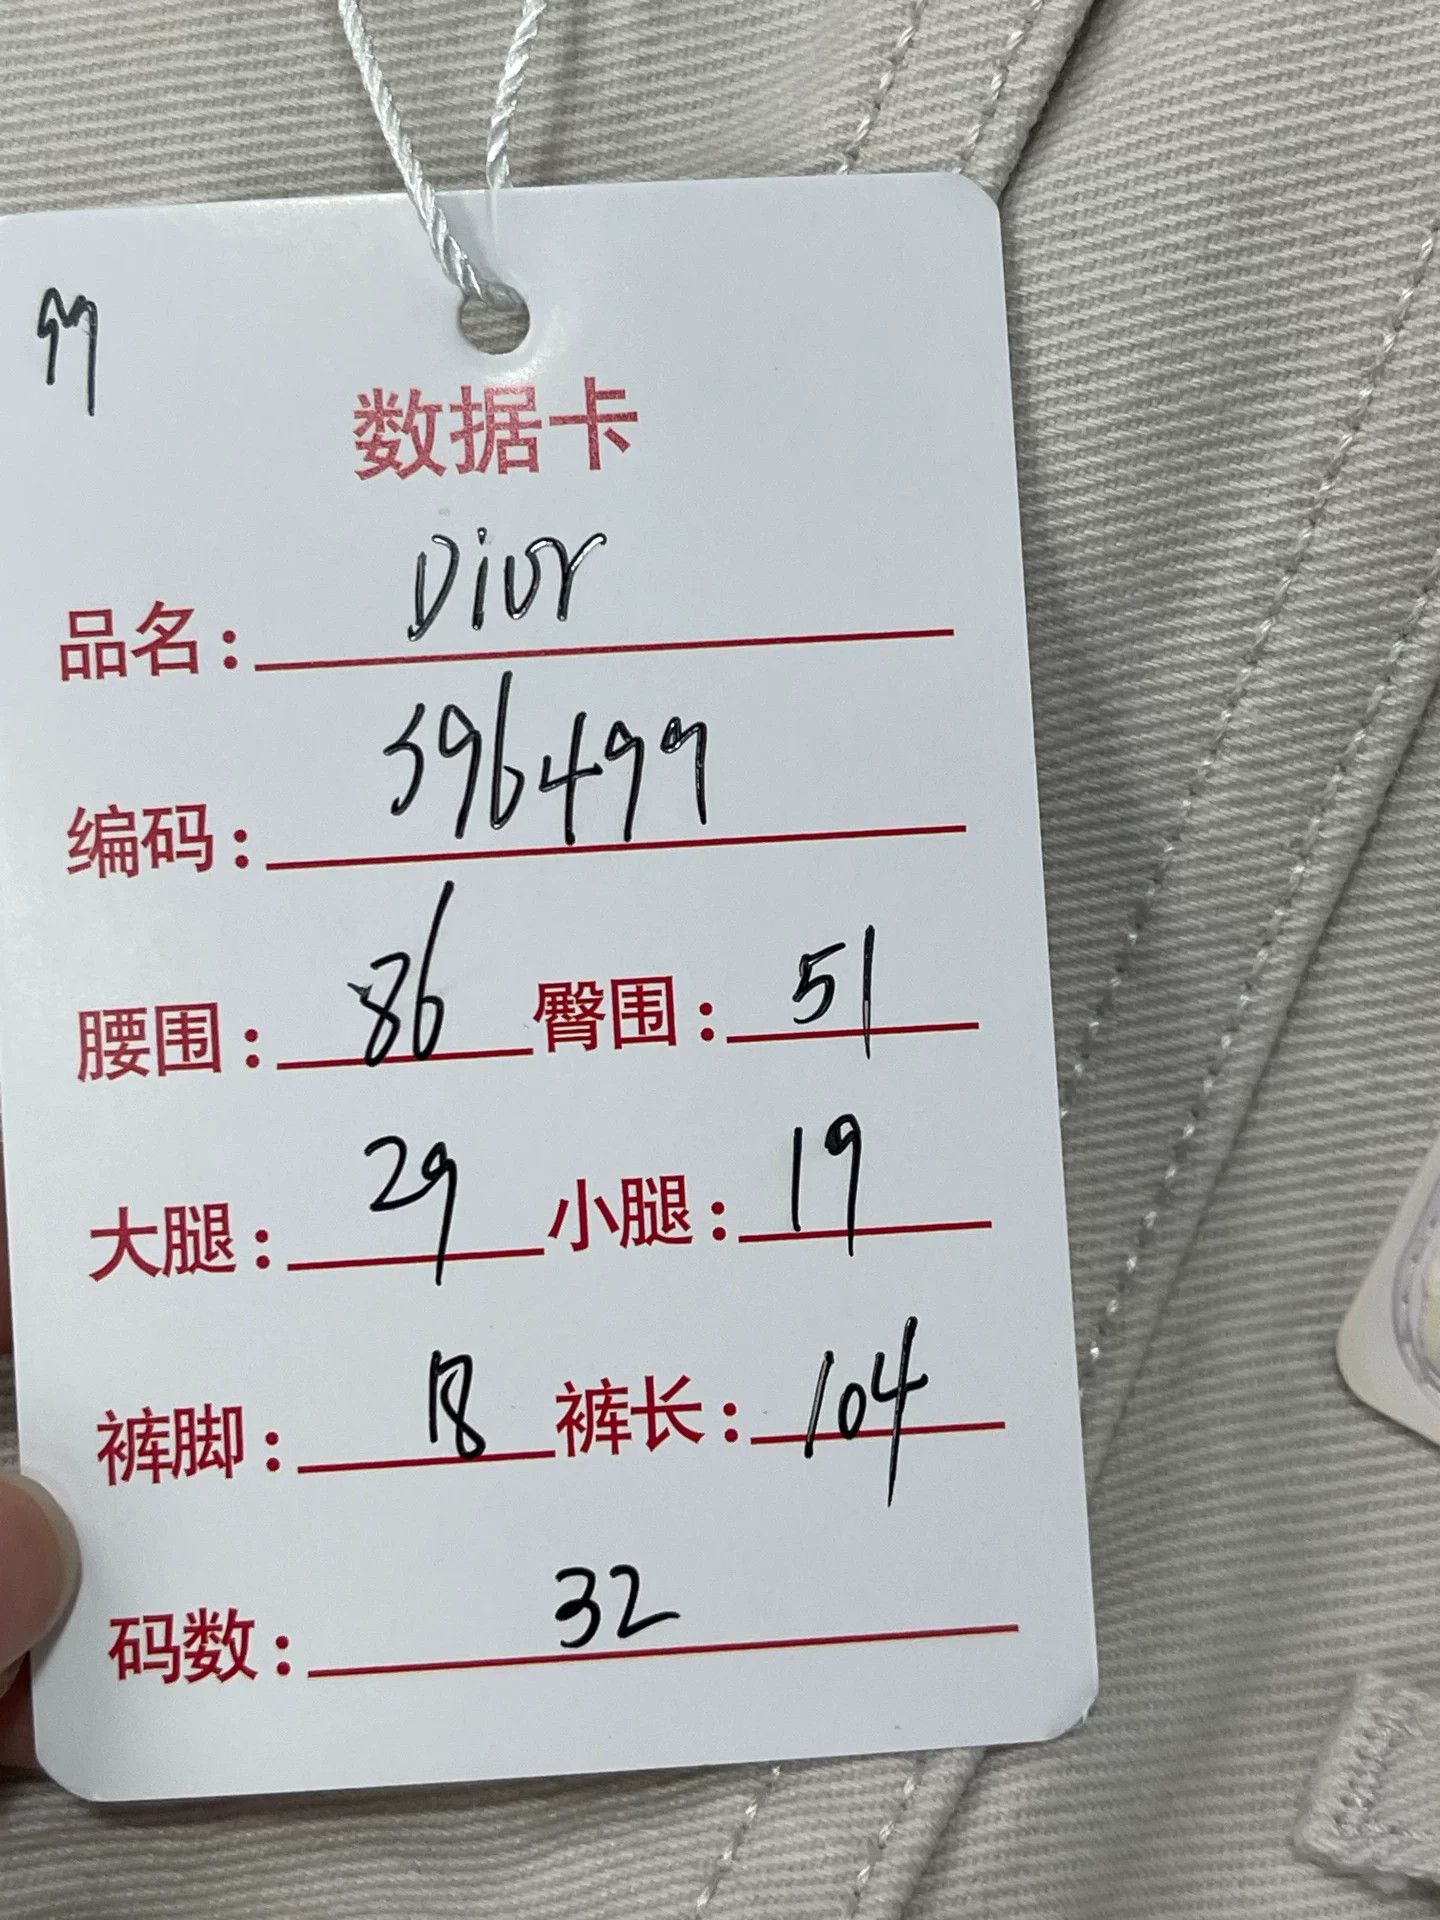 99
数据卡
品名: Dior
编码: 396499
腰围: 86 臀围: 51
大腿: 29 小腿: 19
裤脚: 18 裤长: 104
码数: 32